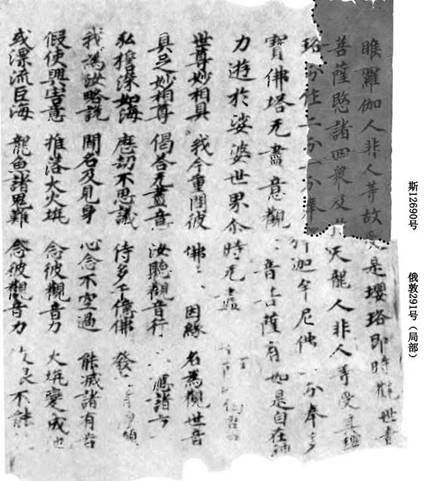 睺羅伽人非人等故受是瓔珞即時觀世音
菩薩愍諸四衆及其天龍人非人等受其瓔
珞分作二分一分奉釋迦牟尼佛一分奉多
寶佛塔无盡意觀音菩薩有如是自在神
力遊於娑婆世界尒時无盡
世尊妙相具 我今重問彼 佛 因緣 名為觀世音
具足妙相尊 偈答无盡意 汝聽觀音行 應諸方
弘誓深如海 歷劫不思議 侍多千億佛 發 願
我為汝略說 聞名及見身 心念不空過 能滅諸有苦
假使興害意 推落大火坑 念彼觀音力 火坑變成池
或漂流巨海 龍魚諸鬼難 念彼觀音力 波浪不能
斯12690号
俄敦291号（局部）